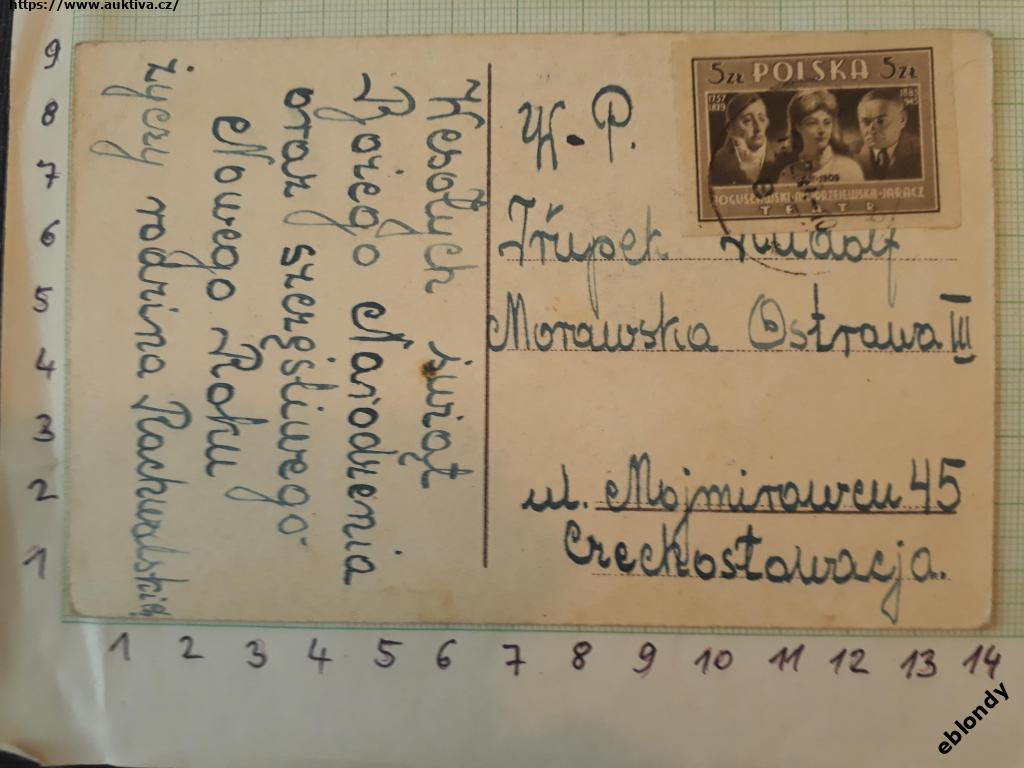 https://www.auktiva.cz/
Wesołych świąt
Bożego Narodzenia
oraz szczęśliwego
Nowego Roku
życzy rodzina Rachwalskich
5 ZŁ POLSKA 5 ZŁ
1757
1829
1885
1945
1909
BOGUSŁAWSKI-MODRZEJEWSKA-JARACZ
TEATR
W. P.
Rudolf
Morawska Ostrawa III
ul. Mojmirowcu 45
Czechosłowacja.
9
8
7
6
5
4
3
2
1
1 2 3 4 5 6 7 8 9 10 11 12 13 14
eblondy